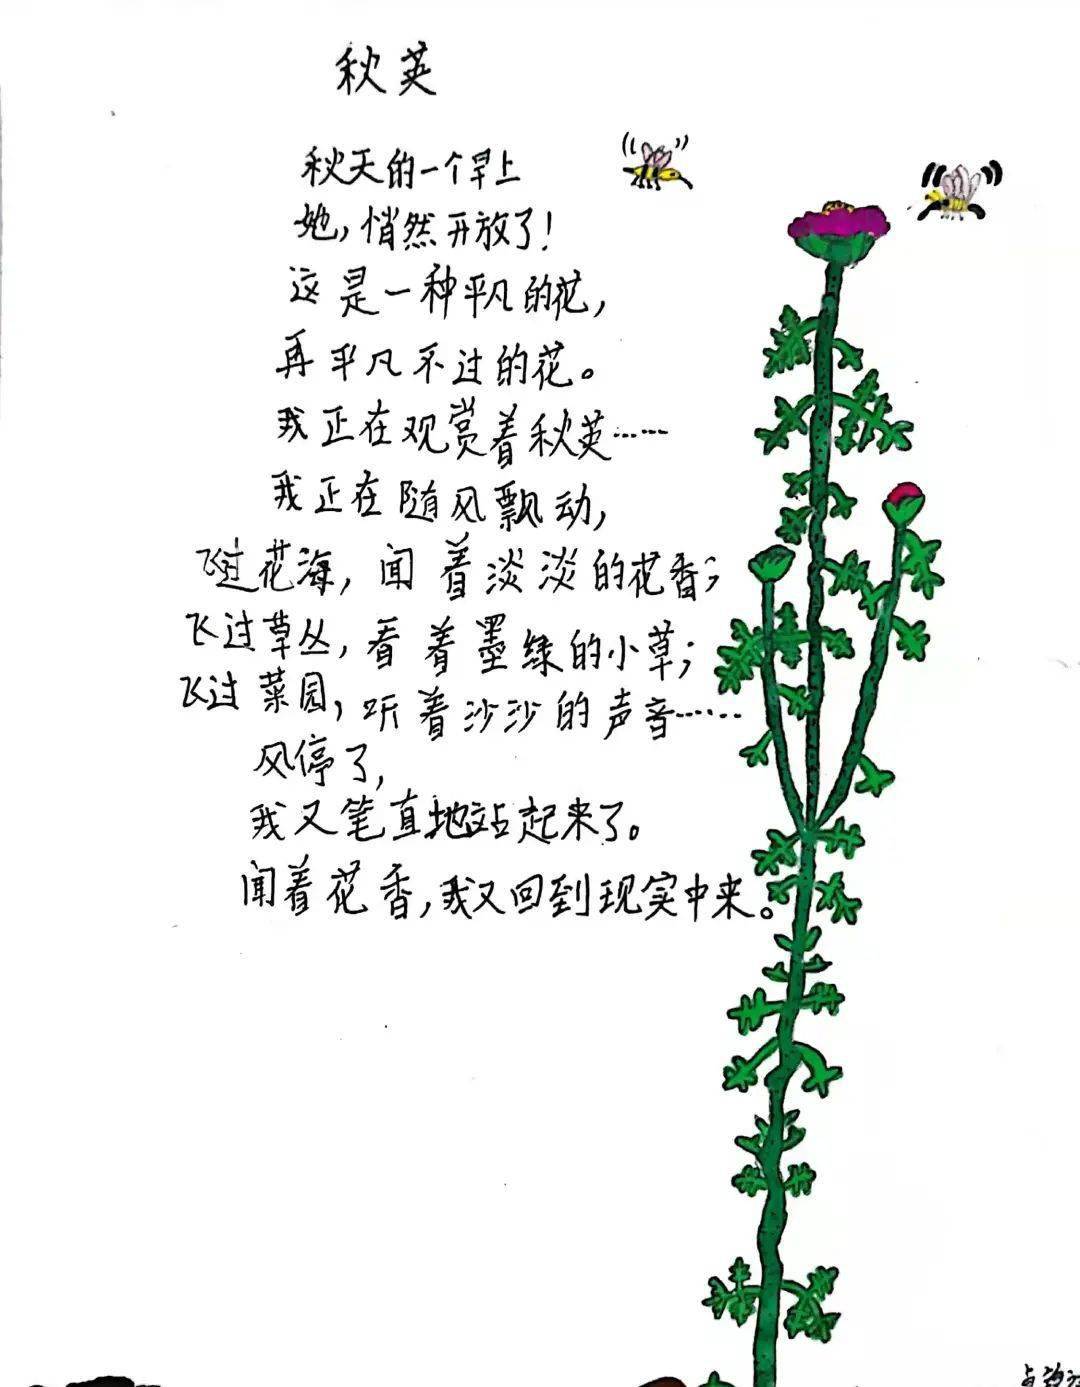 秋英
秋天的一个早上
她,悄然开放了!
这是一种平凡的花,
再平凡不过的花。
我正在观赏着秋英……
我正在随风飘动,
飞过花海,闻着淡淡的花香;
飞过草丛,看着墨绿的小草;
飞过菜园,听着沙沙的声音……
风停了,
我又笔直地站起来了。
闻着花香,我又回到现实中来。